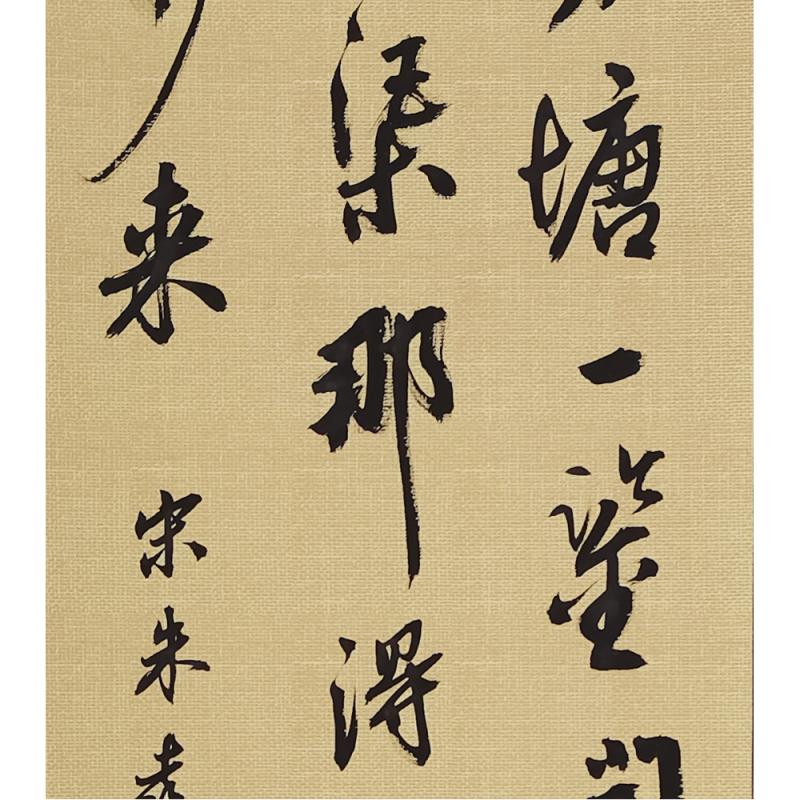 塘一鉴
渠那得
来
宋朱